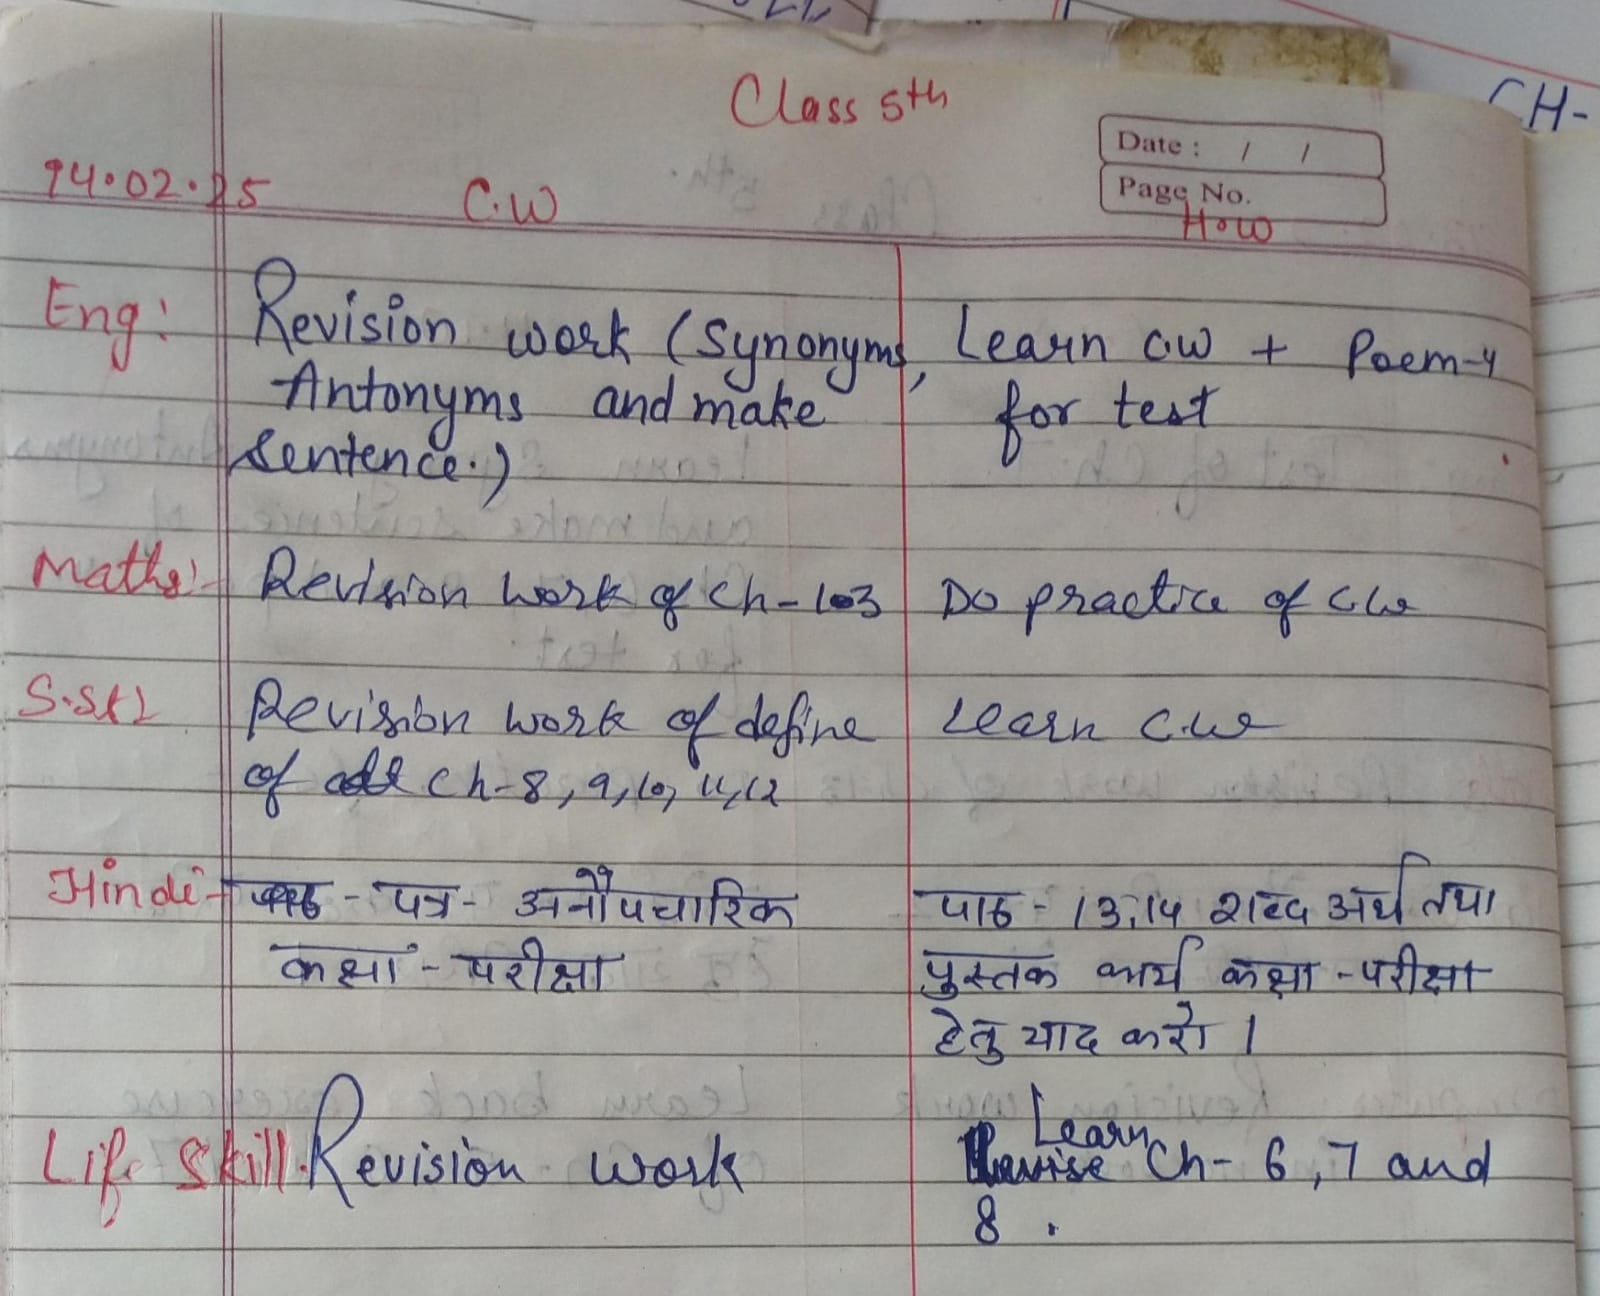 Class 5th
CH-
Date : / /
Page No.
14.02.25 C.W H.W
Eng: Revision work (Synonyms, Learn cw + Poem-4
Antonyms and make for test
sentence.)
Maths:- Revision work of Ch- Do practice of C.W
S.St Revision work of define Learn C.W
of Ch-8, 9, 10, 11, 12
Hindi- - पत्र- अनौपचारिक पाठ - 13,14 शब्द अर्थ तथा
कक्षा - परीक्षा पुस्तक कार्य कक्षा - परीक्षा
हेतु याद करो ।
Life Skill. Revision work Learn Ch- 6, 7 and
8 .